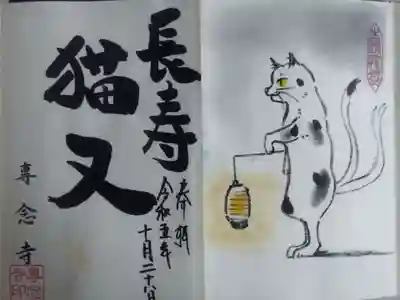 長寿
猫又
奉拝
令和五年
十月二十八日
専念寺